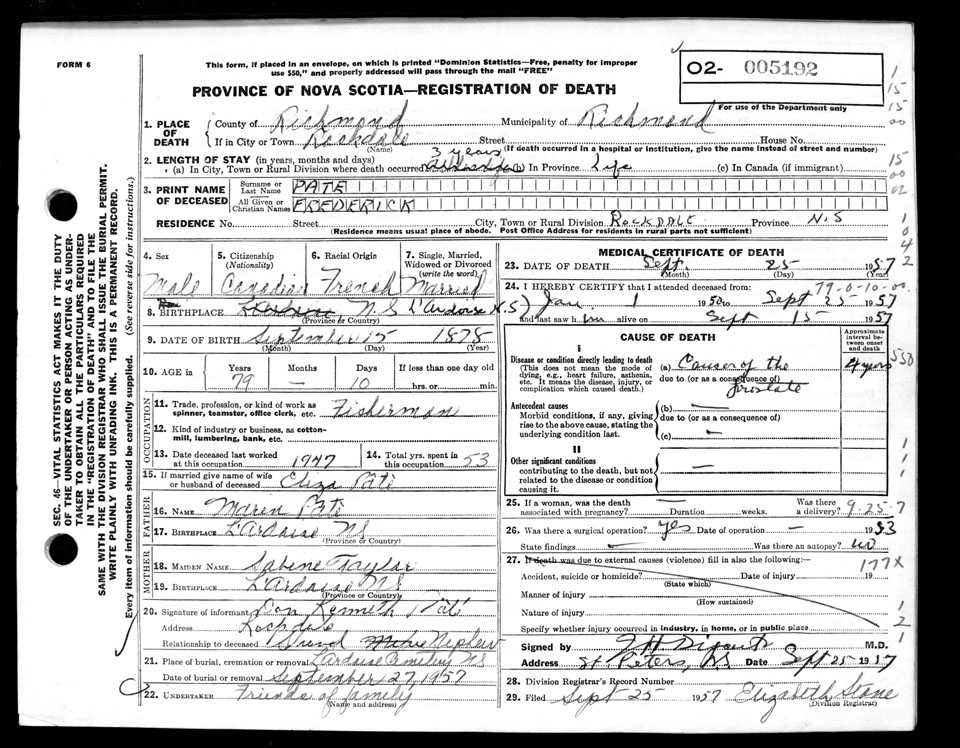 FORM 6
This form, if placed in an envelope, on which is printed "Dominion Statistics—Free, penalty for improper
use $50," and properly addressed will pass through the mail "FREE"
O2- 005192
For use of the Department only
PROVINCE OF NOVA SCOTIA—REGISTRATION OF DEATH
1. PLACE OF DEATH
County of Richmond Municipality of Richmond
If in City or Town Rockdale Street House No.
(Name) (If death occurred in a hospital or institution, give the name instead of street and number)
2. LENGTH OF STAY (in years, months and days)
(a) In City, Town or Rural Division where death occurred 3 years (b) In Province Life (c) In Canada (if immigrant)
3. PRINT NAME OF DECEASED
Surname or Last Name PATE
All Given or Christian Names FREDERICK
RESIDENCE No. Street City, Town or Rural Division ROCKDALE Province N.S
(Residence means usual place of abode. Post Office Address for residents in rural parts not sufficient)
4. Sex Male
5. Citizenship (Nationality) Canadian
6. Racial Origin French
7. Single, Married, Widowed or Divorced (write the word) Married
8. BIRTHPLACE N S L'Ardoise N.S)
(Province or Country)
9. DATE OF BIRTH September 15 1878
(Month) (Day) (Year)
10. AGE in Years 79 Months — Days 10 If less than one day old hrs. or min.
OCCUPATION
11. Trade, profession, or kind of work as spinner, teamster, office clerk, etc. Fisherman
12. Kind of industry or business, as cotton-mill, lumbering, bank, etc.
13. Date deceased last worked at this occupation 1947
14. Total yrs. spent in this occupation 53
15. If married give name of wife or husband of deceased Eliza Pate
FATHER
16. NAME Maren Pate
17. BIRTHPLACE L'Ardoise NS
(Province or Country)
MOTHER
18. MAIDEN NAME Sabine Taylor
19. BIRTHPLACE L'Ardoise NS
(Province or Country)
20. Signature of informant Don Kenneth Pate
Address Rockdale
Relationship to deceased Grand Nephew
21. Place of burial, cremation or removal Lardoise Cemetery NS
Date of burial or removal September 27, 1957
22. UNDERTAKER Friends of family
(Name and address)
MEDICAL CERTIFICATE OF DEATH
23. DATE OF DEATH Sept. 25 1957
(Month) (Day) (Year)
79-0-10-00
24. I HEREBY CERTIFY that I attended deceased from:
Jan 1 1950 to Sept 25 - 1957
and last saw h im alive on Sept 15 1957
CAUSE OF DEATH
Approximate interval between onset and death
I
Disease or condition directly leading to death
(This does not mean the mode of dying, e.g., heart failure, asthenia, etc. It means the disease, injury, or complication which caused death.)
(a) Cancer of the Prostate 4 years
due to (or as a consequence of)
Antecedent causes
Morbid conditions, if any, giving rise to the above cause, stating the underlying condition last.
(b) —
due to (or as a consequence of)
(c) —
II
Other significant conditions contributing to the death, but not related to the disease or condition causing it. —
25. If a woman, was the death associated with pregnancy? — Duration weeks. Was there a delivery?
9-25-7
26. Was there a surgical operation? yes Date of operation — 1953
State findings — Was there an autopsy? no
27. If death was due to external causes (violence) fill in also the following:—
177X
Accident, suicide or homicide? Date of injury 19
(State which)
Manner of injury
(How sustained)
Nature of injury
Specify whether injury occurred in industry, in home, or in public place
Signed by M.D.
Address St Peters, NS Date Sept 25 1957
28. Division Registrar's Record Number
29. Filed Sept 25 1957 Elizabeth Stone
(Division Registrar)
SEC. 46—VITAL STATISTICS ACT MAKES IT THE DUTY
OF THE UNDERTAKER OR PERSON ACTING AS UNDER-
TAKER TO OBTAIN ALL THE PARTICULARS REQUIRED
IN THE "REGISTRATION OF DEATH" AND TO FILE THE
SAME WITH THE DIVISION REGISTRAR WHO SHALL ISSUE THE BURIAL PERMIT.
WRITE PLAINLY WITH UNFADING INK. THIS IS A PERMANENT RECORD.
Every item of information should be carefully supplied. (See reverse side for instructions.)